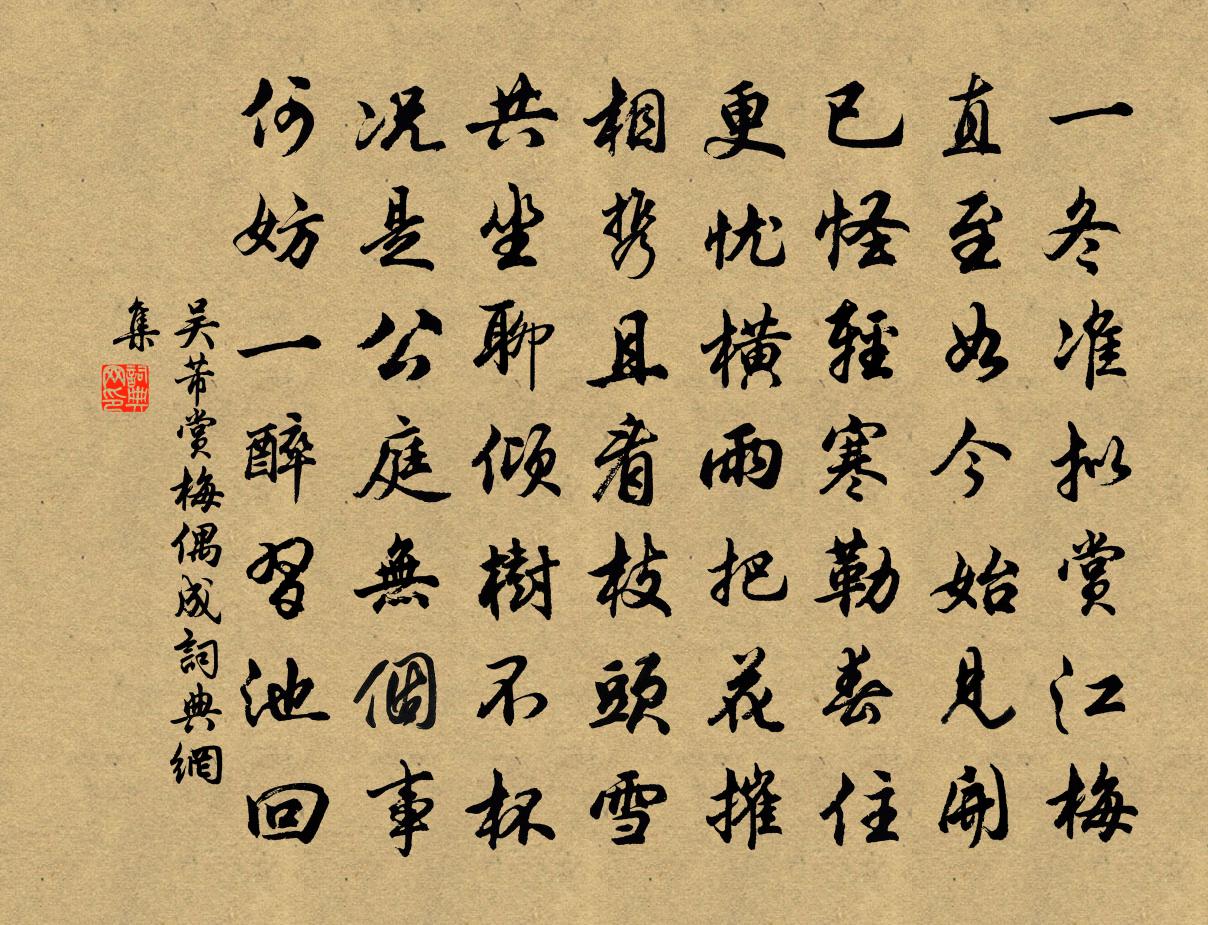 一冬准拟赏江梅
直至如今始見開
已怪輕寒勒春住
更忧橫雨把花摧
相携且看枝頭雪
共坐聊倾樹下杯
况是公庭無個事
何妨一醉習池回
吴芾赏梅偶成詞典網
集
詞典網印